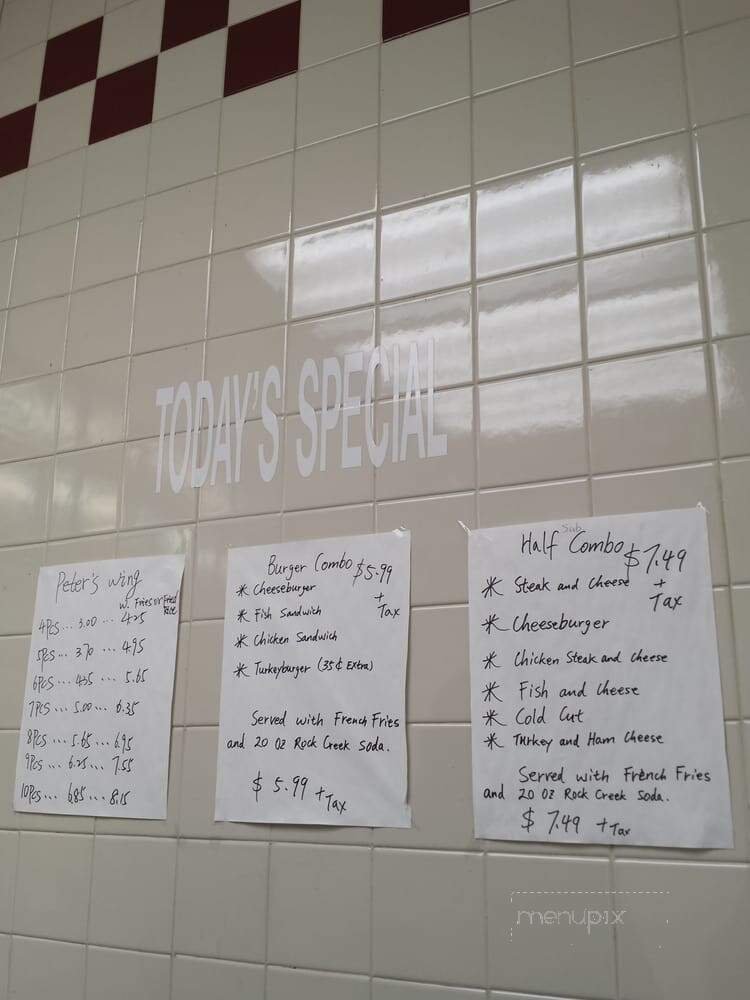 TODAY'S SPECIAL
Peter's wing
w. Fries or Fried Rice
4PCS... 3.00 ... 4.25
5PCS... 3.70 ... 4.95
6PCS ... 4.35 ... 5.65
7PCS ... 5.00 ... 6.35
8PCS ... 5.65 ... 6.95
9PCS ... 6.25 ... 7.55
10PCS... 6.85 ... 8.15
Burger Combo $5.99
+ Tax
* Cheeseburger
* Fish Sandwich
* Chicken Sandwich
* Turkeyburger (35¢ Extra)
Served with French Fries
and 20 oz Rock Creek Soda.
$ 5.99 + Tax
Half Sub Combo $7.49
+ Tax
* Steak and Cheese
* Cheeseburger
* Chicken Steak and Cheese
* Fish and Cheese
* Cold Cut
* Turkey and Ham Cheese
Served with French Fries
and 20 oz Rock Creek Soda.
$ 7.49 + Tax
menupix